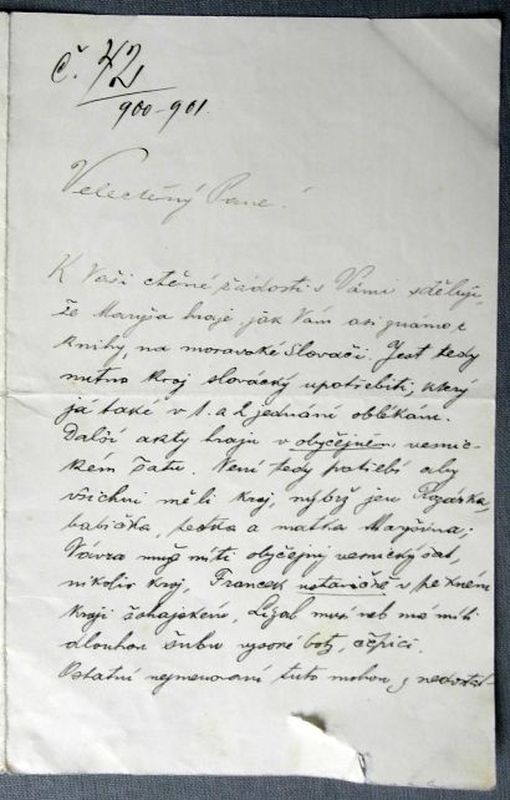 č. 42
900-901.
Velectěný Pane!
K Vaší ctěné žádosti Vámi sděluji,
že Maryša hraje jak Vám asi známo z
knihy, na moravské Slovači. Jest tedy
nutno kroj slovácký upotřebiti, který
já také v 1. a 2 jednání oblékám.
Další akty hraju v obyčejném vesnic-
kém šatu. Není tedy potřebí aby
všichni měli kroj, nýbrž jen Rozárka,
babička, tetka a matka Maryšina;
Vávra muže míti obyčejný vesnický šat,
nikoliv kroj, Francek ustavičně v pěkném
kroji šohajském, Lízal musí neb má míti
dlouhou šubu vysoké boty, čepici.
Ostatní nejmenovaní tuto mohou z nedostat-